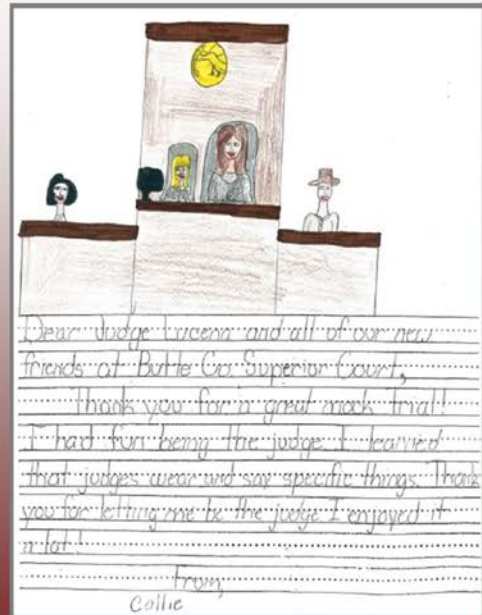 Dear Judge Lucena and all of our new
friends at Butte Co. Superior Court,
Thank you for a great mock trial!
I had fun being the judge. I learned
that judges wear and say specific things. Thank
you for letting me be the judge. I enjoyed it
a lot!
From,
Callie